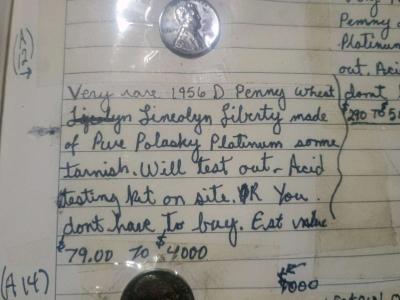 Penny
Platinum
out. Aci
dont
$290 TO $5
Very rare 1956 D Penny wheat
Lincolyn Liberty made
of Pure Polasky Platinum some
tarnish. Will test out - Acid
testing kit on site. OR You
dont have to buy. Est value
$79.00 TO $4000
(A 14)
$5000